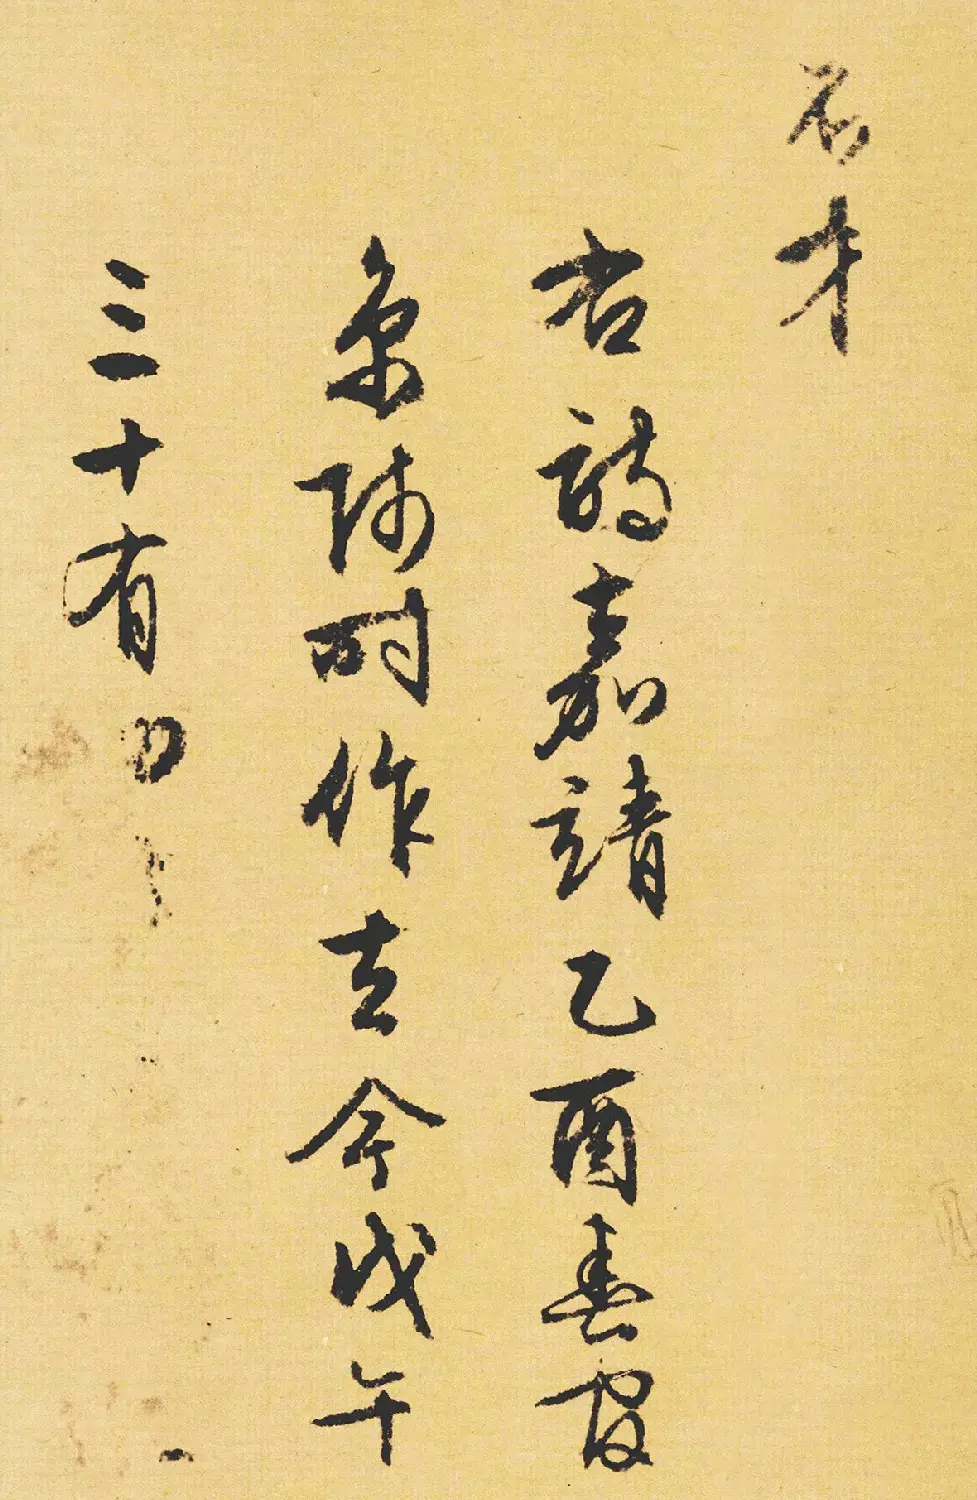 才
右詩嘉靖乙酉春官
京師時作去今戊午
三十有